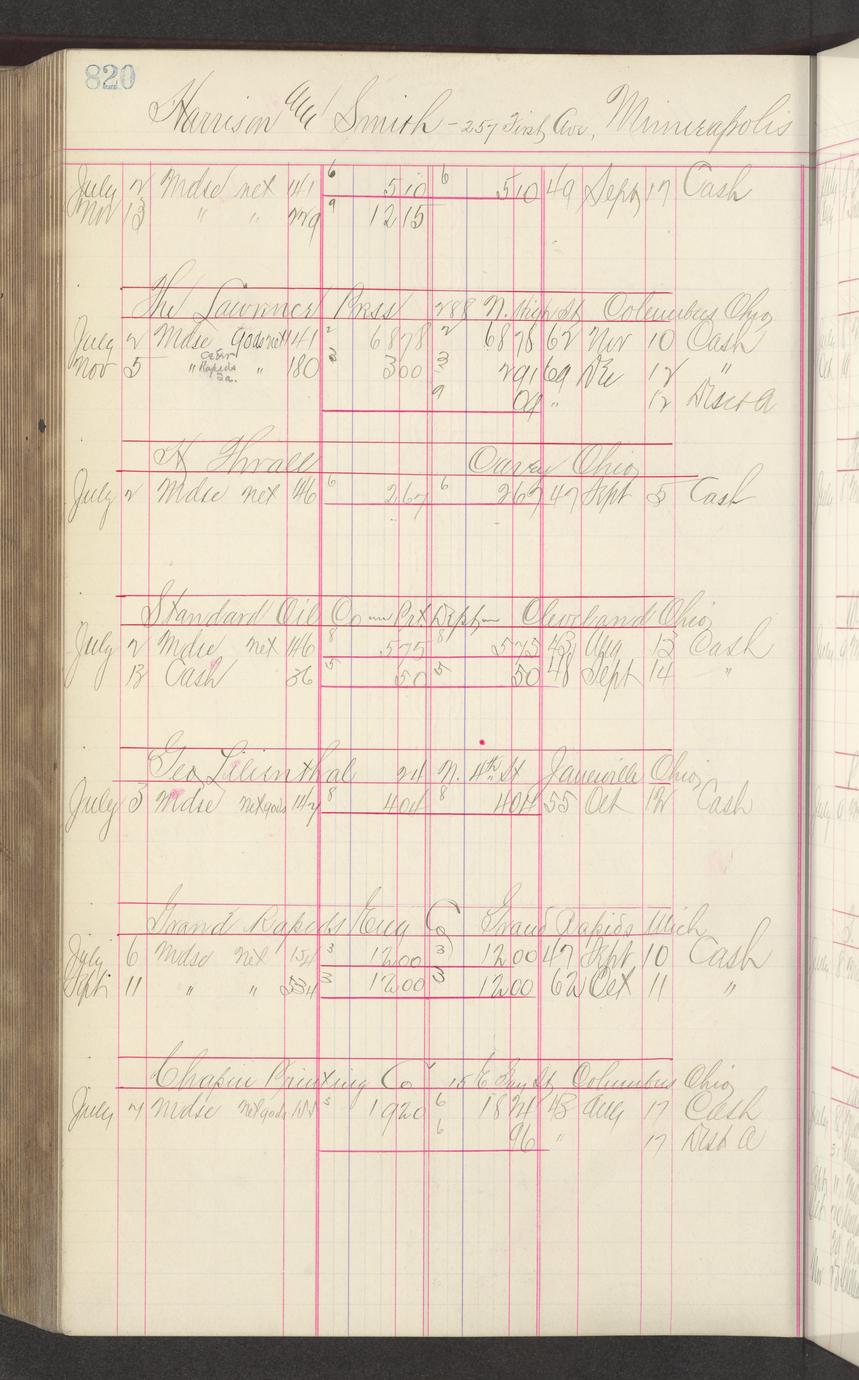 820
Harrison and Smith - 257 First Ave, Minneapolis
July 2 Mdse net 141 6 510 6 510 49 Sept 17 Cash
Nov 13 " " 779 9 1215
The Lawrence Press 288 N. High St Columbus Ohio
July 2 Mdse Gods net 141 2 6878 2 6878 62 Nov 10 Cash
Nov 5 " Cedar Rapids Ia. " 180 3 300 3 291 69 Dec 12 "
9 09 " 12 Disct A
Thrall Carey Ohio
July 2 Mdse net 146 6 267 6 267 47 Sept 5 Cash
Standard Oil Co Prt Dept Cleveland Ohio
July 2 Mdse net 146 8 575 8 575 43 Aug 13 Cash
13 Cash 36 5 50 5 50 48 Sept 14 "
Geo Lilienthal 24 N. 4th St Zanesville Ohio
July 3 Mdse net gods 147 8 404 8 404 55 Oct 12 Cash
Grand Rapids Eng Co Grand Rapids Mich
July 6 Mdse net 154 3 1200 3 1200 47 Sept 10 Cash
Sept 11 " " 534 3 1200 3 1200 62 Oct 11 "
Chapin Printing Co 15 E Gay St Columbus Ohio
July 7 Mdse net gods 1920 6 1824 43 Aug 17 Cash
6 96 " 17 Disct A